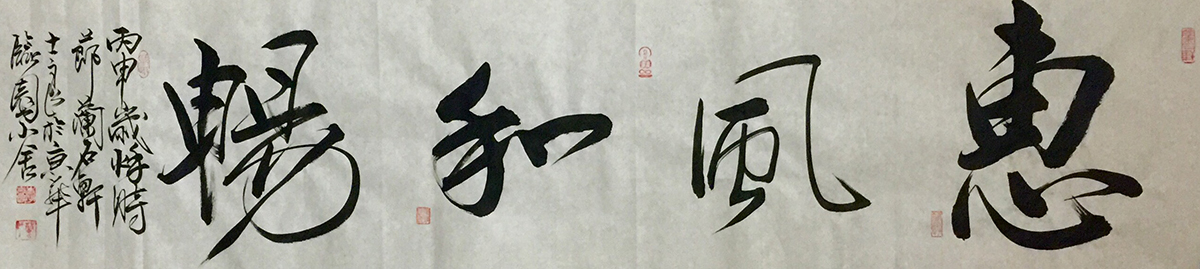 惠風和暢
丙申歲將時
節蘭石軒
士良於京華
臨園小舍